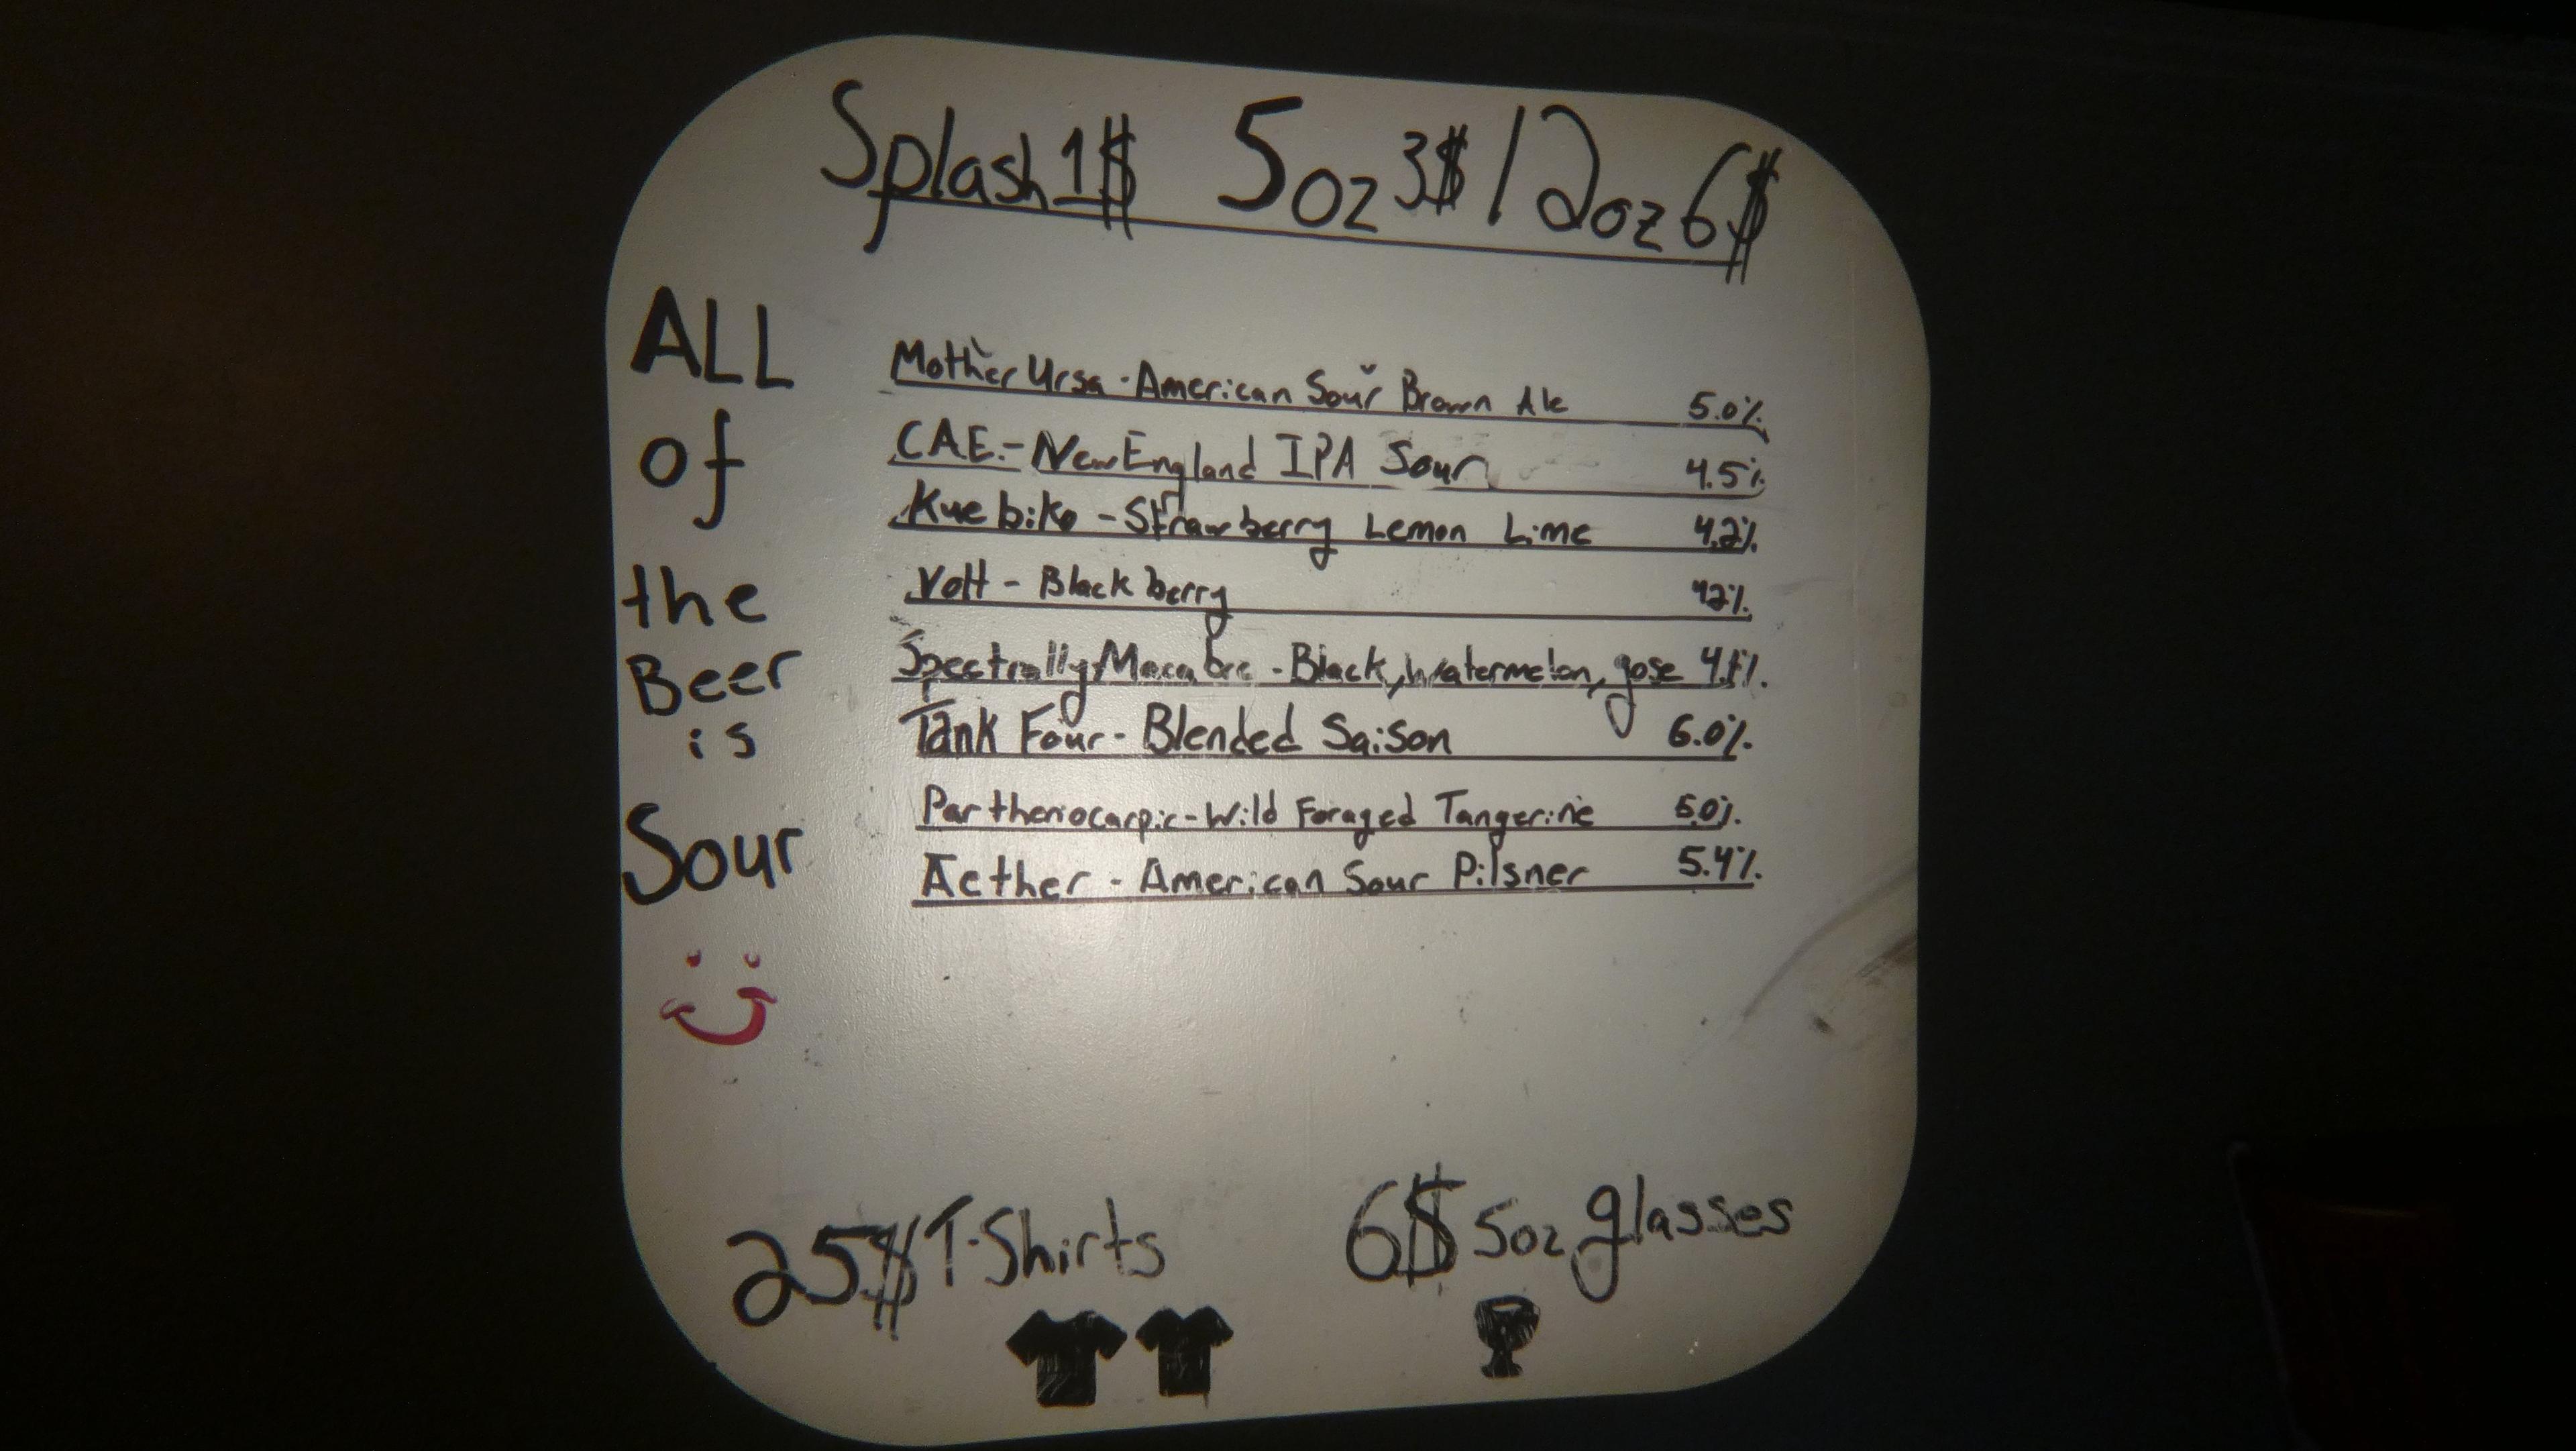 Splash 1$ 5oz 3$ / 12oz 6$
ALL
of
the
Beer
is
Sour
Mother Ursa - American Sour Brown Ale 5.0%
C.A.E. - New England IPA Sour 4.5%
Kuebiko - Strawberry Lemon Lime 4.2%
Volt - Blackberry 4.2%
Spectrally Macabre - Black, watermelon, gose
Tank Four - Blended Saison 6.0%
Parthenocarpic - Wild Foraged Tangerine 5.0%
Aether - American Sour Pilsner 5.4%
25$ T-Shirts
6$ 5oz glasses